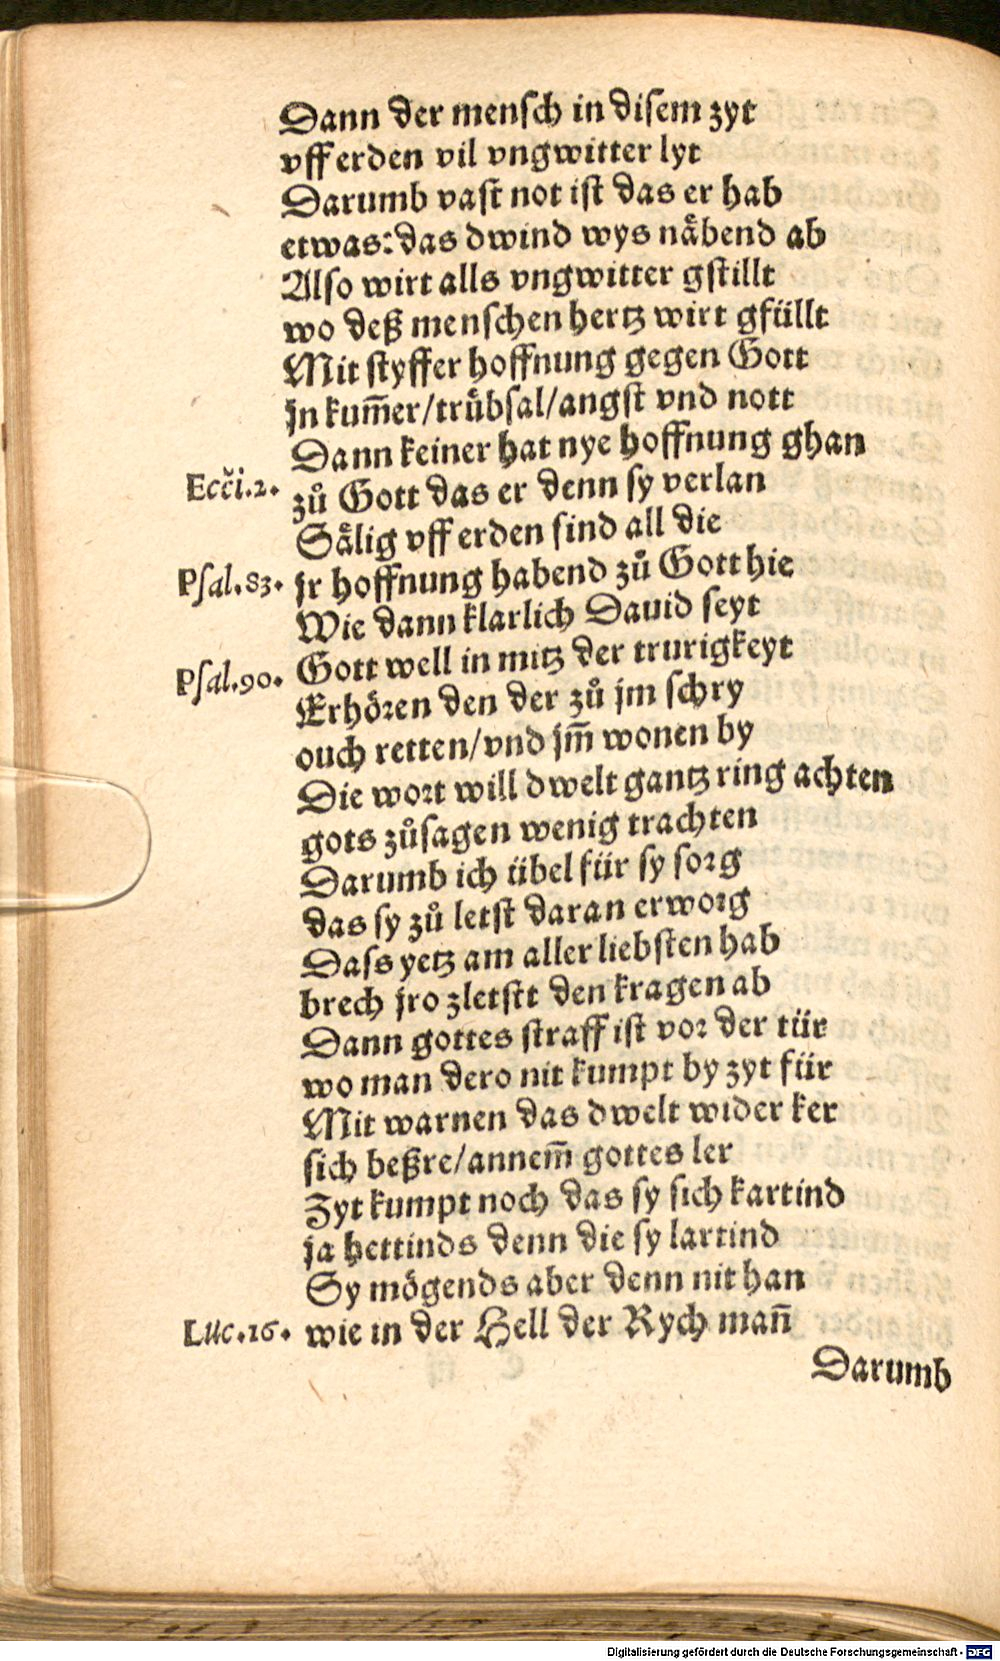 Dann der mensch in disem zyt
vff erden vil vngwitter lyt
Darumb vast not ist das er hab
etwas: das dwind wys nåbend ab
Also wirt alls vngwitter gstillt
wo deß menschen hertz wirt gfüllt
Mit styffer hoffnung gegen Gott
jn kum̃er/trůbsal/angst vnd nott
Dann keiner hat nye hoffnung ghan
Eccĩ.2. zů Gott das er denn sy verlan
Sålig vff erden sind all die
Psal.83. jr hoffnung habend zů Gott hie
Wie dann klarlich Dauid seyt
Psal.90. Gott well in mitz der trurigkeyt
Erhören den der zů jm schry
ouch retten/vnd jm̃ wonen by
Die wort will dwelt gantz ring achten
gots zůsagen wenig trachten
Darumb ich übel für sy sorg
das sy zů letst daran erworg
Dass yetz am aller liebsten hab
brech jro zletstt den kragen ab
Dann gottes straff ist vor der tür
wo man dero nit kumpt by zyt für
Mit warnen das dwelt wider ker
sich beßre/annem̃ gottes ler
Zyt kumpt noch das sy sich kartind
ja hettinds denn die sy lartind
Sy mögends aber denn nit han
Luc.16. wie in der Hell der Rych man̄
Darumb
Digitalisierung gefördert durch die Deutsche Forschungsgemeinschaft - DFG